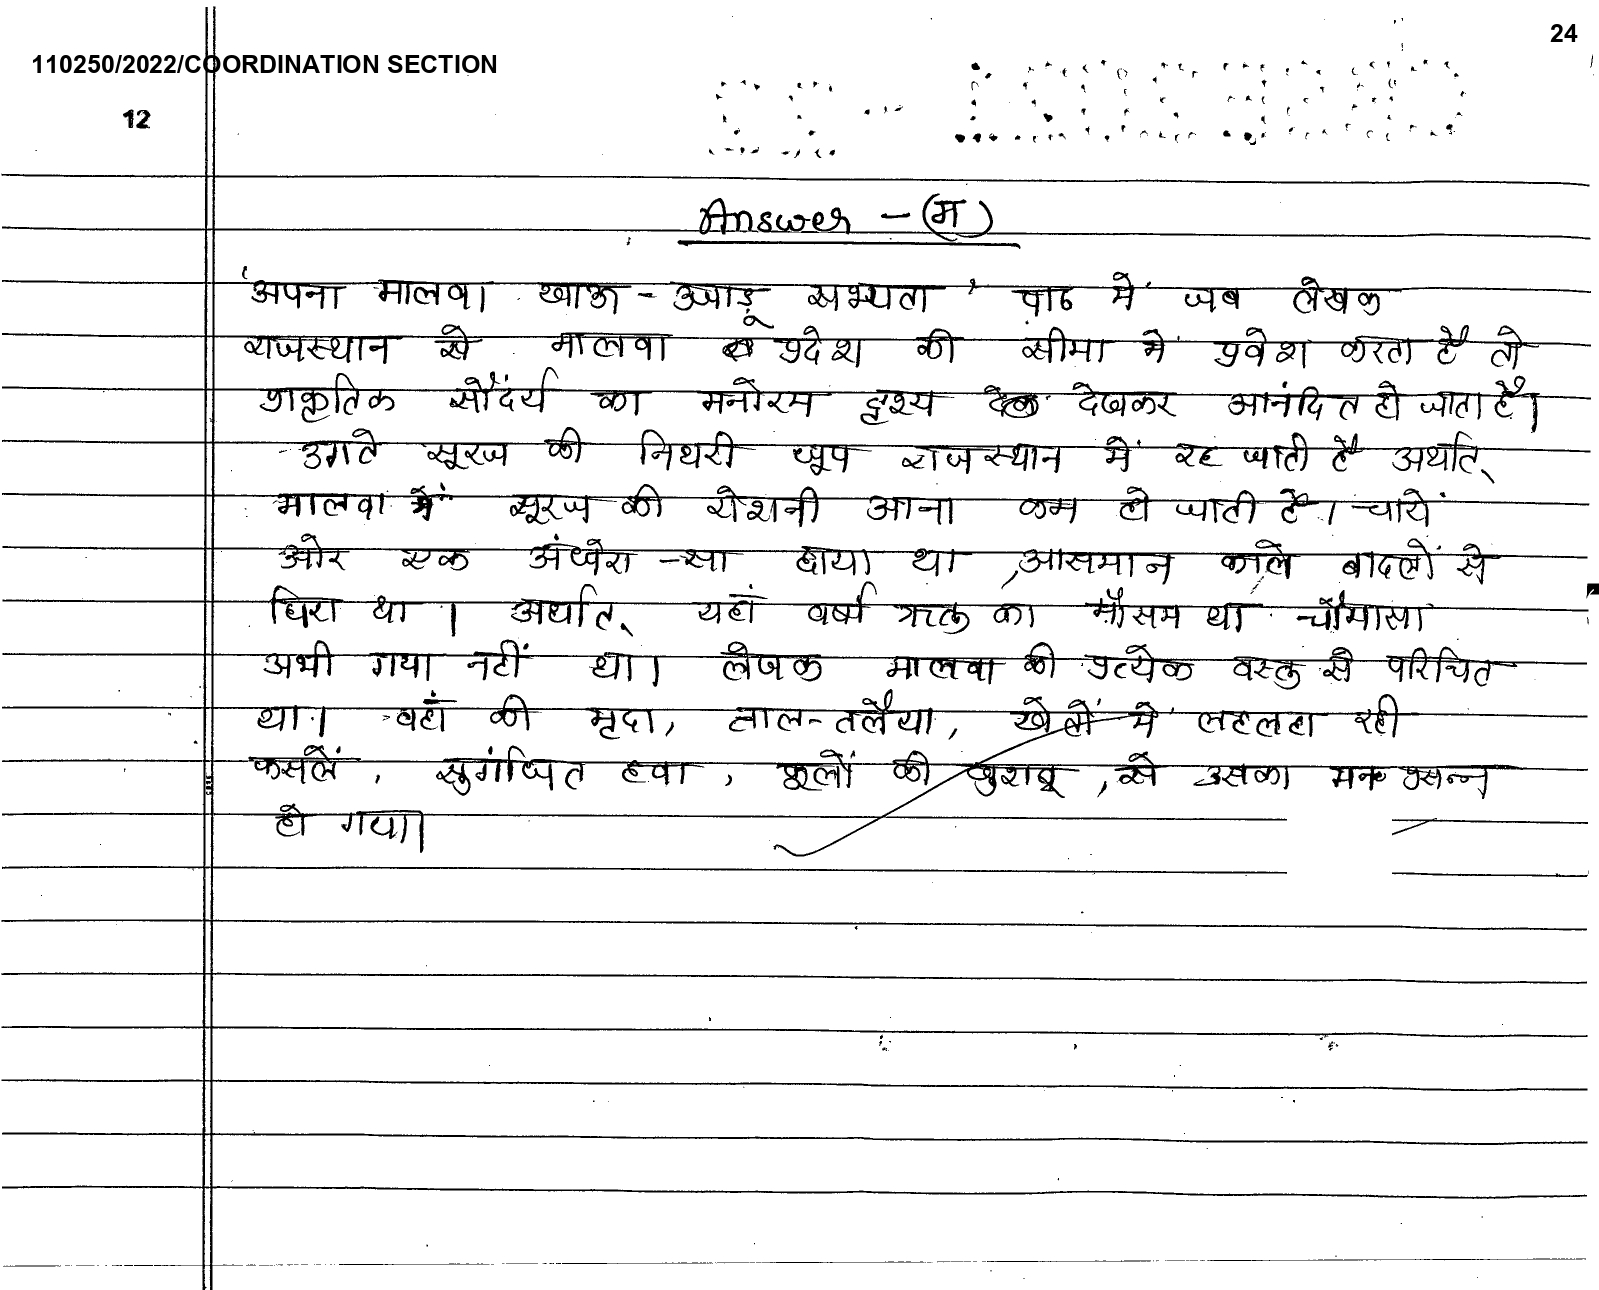 24
110250/2022/COORDINATION SECTION
12
Answer - (म)
'अपना मालवा खाऊ - उजाडू सभ्यता' पाठ में जब लेखक
राजस्थान से मालवा प्रदेश की सीमा में प्रवेश करता है तो
प्राकृतिक सौंदर्य का मनोरम दृश्य देखकर आनंदित हो जाता है।
उगते सूरज की निथरी धूप राजस्थान में रह जाती है अर्थात्
मालवा में सूरज की रोशनी आना कम हो जाती है। चारों
ओर एक अंधेरा -सा छाया था, आसमान काले बादलों से
घिरा था। अर्थात् यहाँ वर्षा ऋतु का मौसम था चौमासा
अभी गया नहीं था। लेखक मालवा की प्रत्येक वस्तु से परिचित
था। वहाँ की मृदा, ताल-तलैया, खेतों में लहलहा रही
फसलें, सुगंधित हवा, फूलों की खुशबू, से उसका मन प्रसन्न
हो गया।